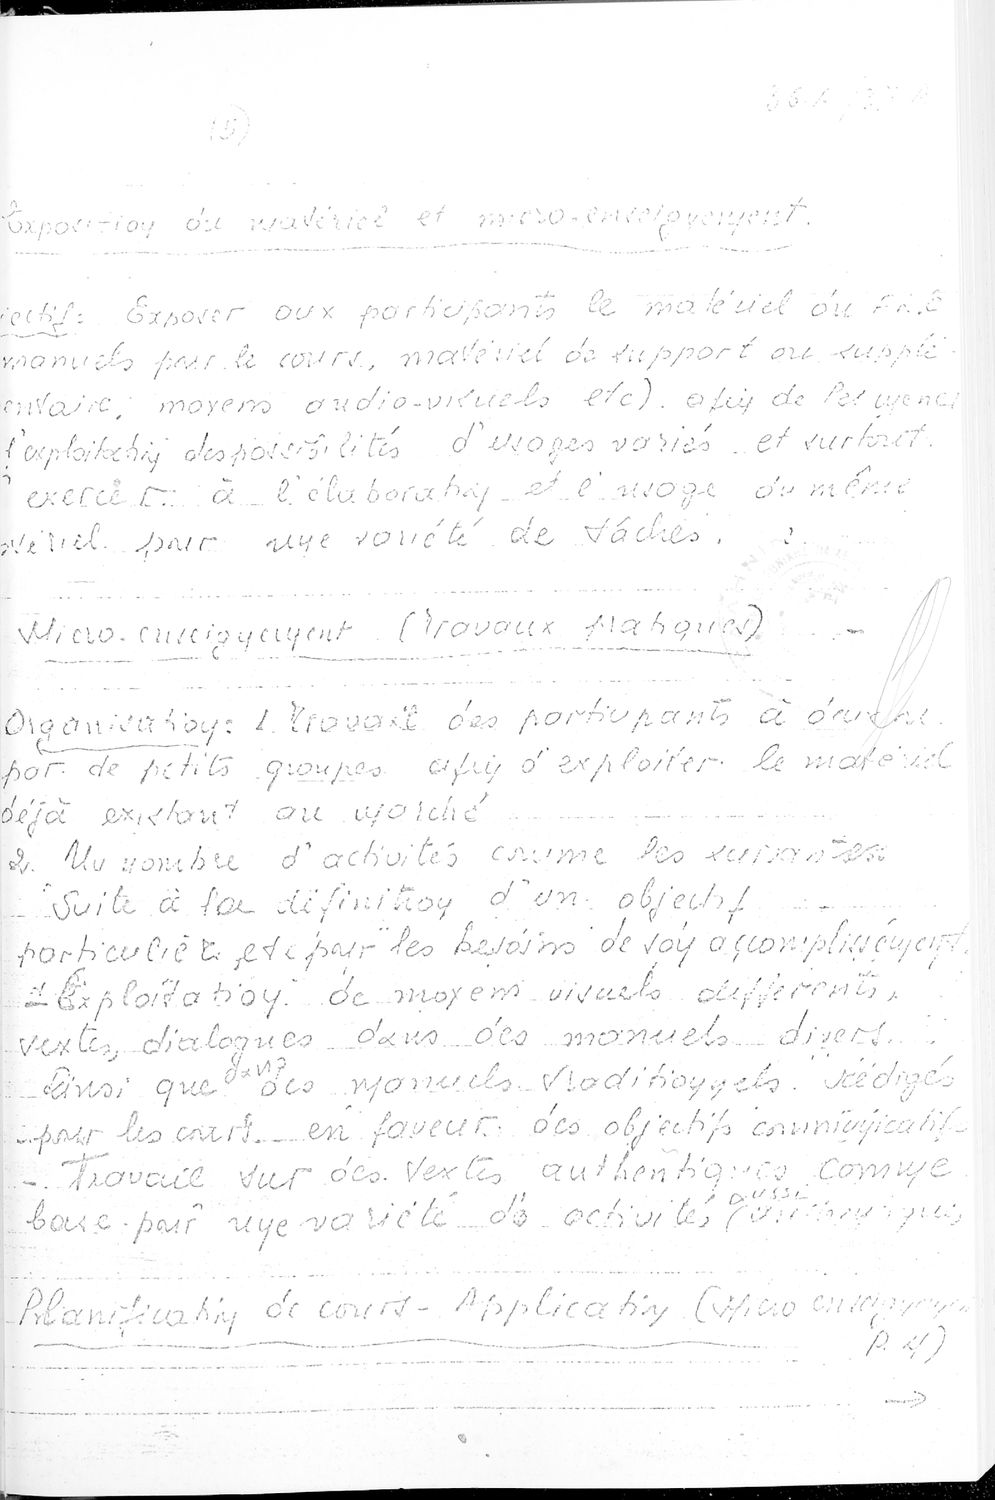 (5)
Exposition du matériel et micro-enseignement.
jectif: Exposer aux participants le matériel du F.L.E
manuels pour le cours, matériel de support ou supplé-
entaire, moyens audio-visuels etc). afin de les
l'exploitation des possibilités d'usages variés et surtout.
exercer à l'élaboration et l'usage du même
tériel pour une variété de tâches.
Micro-enseignement (Travaux pratiques)
Organisation: 1. Travail des participants à
par de petits groupes afin d'exploiter le matériel
déjà existant au marché
2. Un nombre d'activités comme les suivantes
Suite à la définition d'un objectif
particulier et pour les besoins de son accomplissement.
- Exploitation de moyens visuels différents,
textes, dialogues dans des manuels divers.
Ainsi que dans des manuels traditionnels rédigés
pour les cours en faveur des objectifs communicatifs
- Travail sur des textes authentiques comme
base pour une variété de activités (aussi authentiques
Planification de cours - Application (Micro enseignement
p. 4)
→